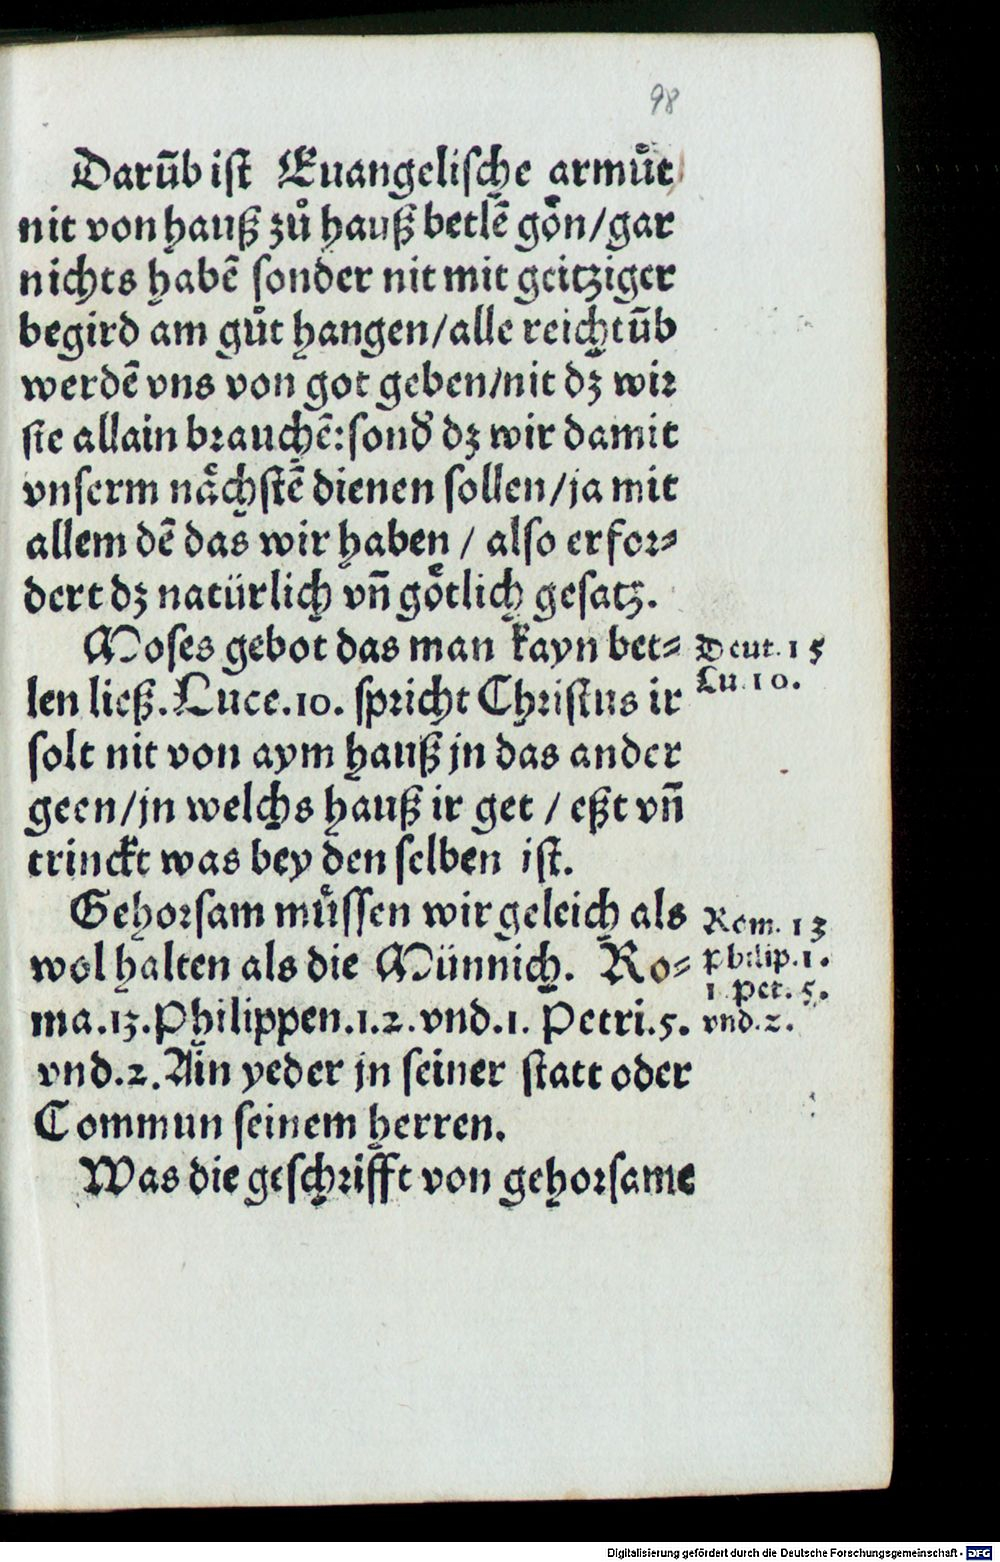 98
Darũb ist Euangelische armůt
nit von hauß zů hauß betlẽ gön/gar
nichts habẽ sonder nit mit geitziger
begird am gůt hangen/alle reichtũb
werdẽ vns von got geben/nit dz wir
sie allain brauchẽ:sond̕ dz wir damit
vnserm nächstẽ dienen sollen/ja mit
allem dẽ das wir haben / also erfor⸗
dert dz natürlich vñ götlich gesatz.
Moses gebot das man kayn bet⸗
len ließ. Luce.10. spricht Christus ir
solt nit von aym hauß jn das ander
geen/jn welchs hauß ir get / eßt vñ
trinckt was bey den selben ist.
Gehorsam müssen wir geleich als
wol halten als die Münnich. Ro⸗
ma.13.Philippen.1.2.vnd.1. Petri.5.
vnd.2. Ain yeder jn seiner statt oder
Commun seinem herren.
Was die geschrifft von gehorsame
Deut. 15
Lu. 10.
Rom. 13
Philip. 1.
1 Pet. 5.
vnd. 2.
Digitalisierung gefördert durch die Deutsche Forschungsgemeinschaft - DFG